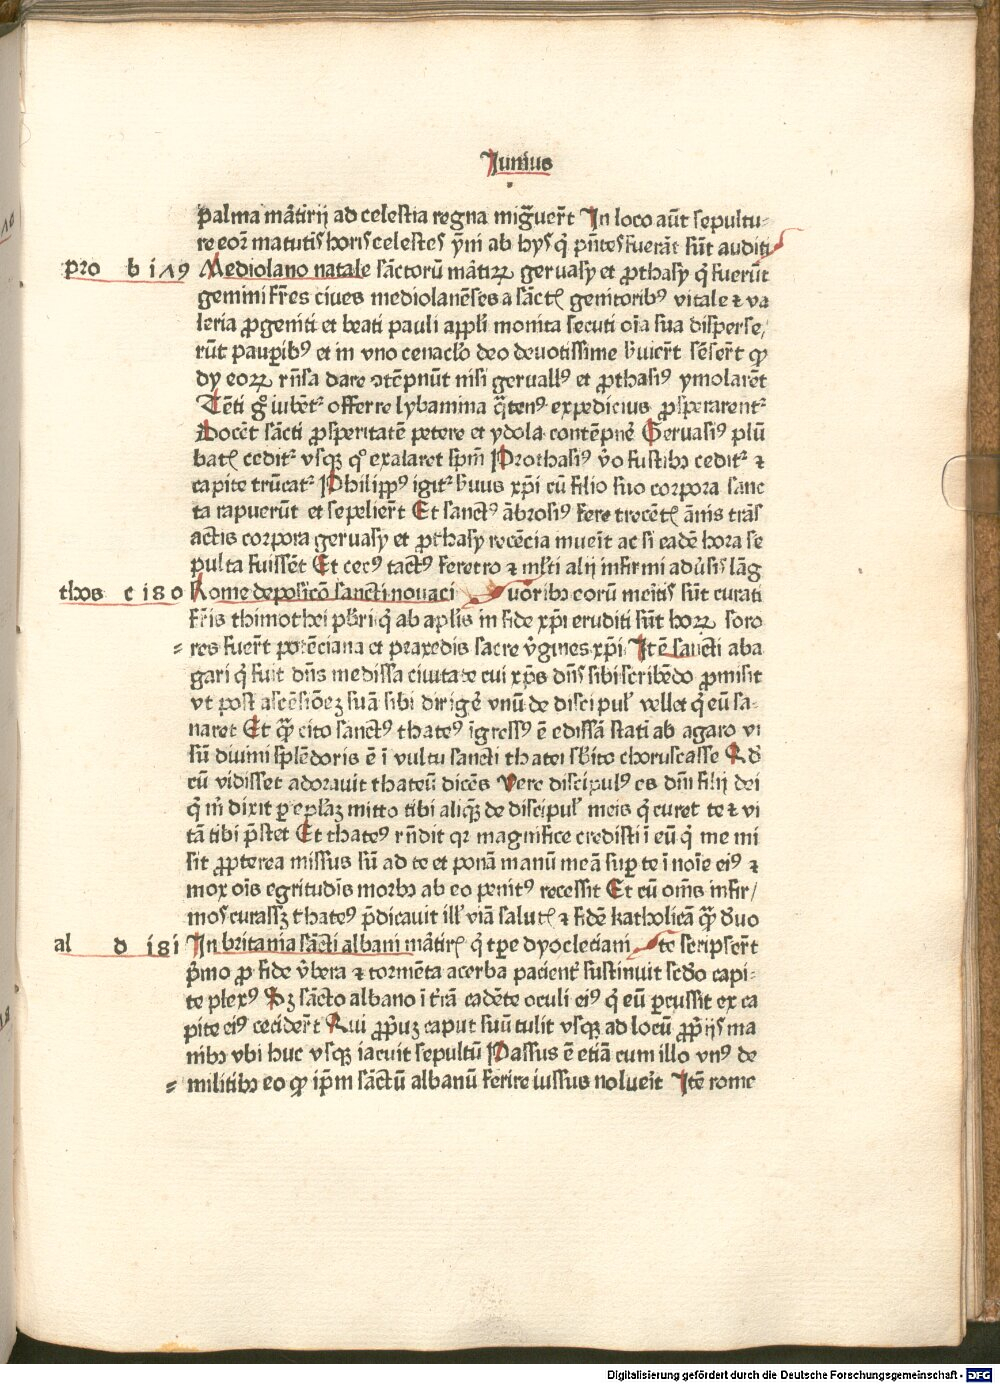 Junius
palma mãtirij ad celestia regna mig̃uer̃t In loco aũt sepultu⸗
re eoꝝ matutis̃ horis celestes ẏm̃ ab hys q̃ pñtes fuerãt sũt auditi
pro b i 19 Mediolano natale sãctorũ mãtiꝝ geruasy et ꝓthasy q̃ fuerũt
gemini fr̃es ciues mediolanẽses a sãctꝭ genitoribꝰ vitale ⁊ va
leria ꝓgeniti et beati pauli appl̃i monita secuti oĩa sua disperse,
rũt pauꝑibꝰ et in vno cenacl̃o deo deuotissime
dare ↄtẽpnũt nisi geruasiꝰ et ꝓthasiꝰ ymolarẽt
iubẽt᷑ offerre lybamina q̃tenꝰ expedicius ꝓsperarent᷑
Docẽt sãcti ꝓsperitatẽ petere et ydola contẽpne᷑ Geruasiꝰ plũ
batꝭ cedit᷑ vsqꝫ qͦ exalaret spm̃ Prothasiꝰ v̾o fustibꝫ cedit᷑ ⁊
capite trũcat᷑ Philippꝰ igit᷑ xp̃i cũ filio suo corpora sanc
ta rapuerũt et sepelier̃t Et sanctꝰ ãbrosiꝰ fere trecẽtꝭ ãnis trãs
actis corpora geruasy et ꝓthasy recẽcia ac si eadẽ hora se
pulta fuissẽt Et cecꝰ tactꝰ feretro ⁊ ml̃ti alij infirmi lãg
thos c i 8 0 Rome deposicõ sancti nouaci uoribꝫ eorũ meritis̃ sũt curati
fr̃is thimothei pb̃ri q̃ ab apl̃is in fide xp̃i eruditi sũt hoꝝ soro
⸗ res fuer̃t potẽciana et praxedis sacre v̾gines xp̃i Itẽ sancti aba
gari q̃ fuit dñs medissa ciuitate cui xp̃s dñs sibi scribẽdo ꝓmisit
vt post ascẽsiõeꝫ suã sibi dirige᷑ vnũ de discipul̾ vellet q̃ eũ sa⸗
naret Et cito sanctꝰ thateꝰ ĩgressꝰ ẽ edissã stati᷑ ab agaro vi
sũ diuini splẽdoris ẽ ĩ vultu sancti thatei sb̃ito choruscasse
cũ vidisset adorauit thateũ dicẽs Vere discipulꝰ es dñi filij dei
q̃ m̃ dixit ꝑ epl̃aꝫ mitto tibi aliqꝫ̃ de discipul̾ meis q̃ curet te ⁊ vi
tã tibi p̃stet Et thateꝰ rñdit qꝛ magnifice credisti ĩ eũ q̃ me mi
sit ꝓpterea missus sũ ad te et ponã manũ meã suꝑ te ĩ noĩe eiꝰ ⁊
mox oĩs egritudĩs morbꝫ ab eo penitꝰ recessit Et cũ om̃s infir/
mos curassꝫ thateꝰ p̃dicauit ill̾ viã salutꝭ ⁊ fidẽ katholicã
al d i 8 i In britania sãcti albani mãtirꝭ q̃ tp̃e dyocleciani te scripser̃t
p̃mo ꝓ fide v̾bera ⁊ tormẽta acerba pacient᷑ sustinuit capi⸗
te plexꝰ sãcto albano ĩ t̾rã cadẽte oculi eiꝰ q̃ eũ ꝑcussit ex ca
pite eiꝰ cecider̃t Qui caput suũ tulit vsqꝫ ad locũ ꝓp̃ijs ma
nibꝫ vbi huc vsqꝫ iacuit sepultũ Passus ẽ etiã cum illo vnꝰ de
⸗ militibꝫ eo ip̃m sãctũ albanũ ferire iussus noluerit Itẽ rome
Digitalisierung gefördert durch die Deutsche Forschungsgemeinschaft - DFG